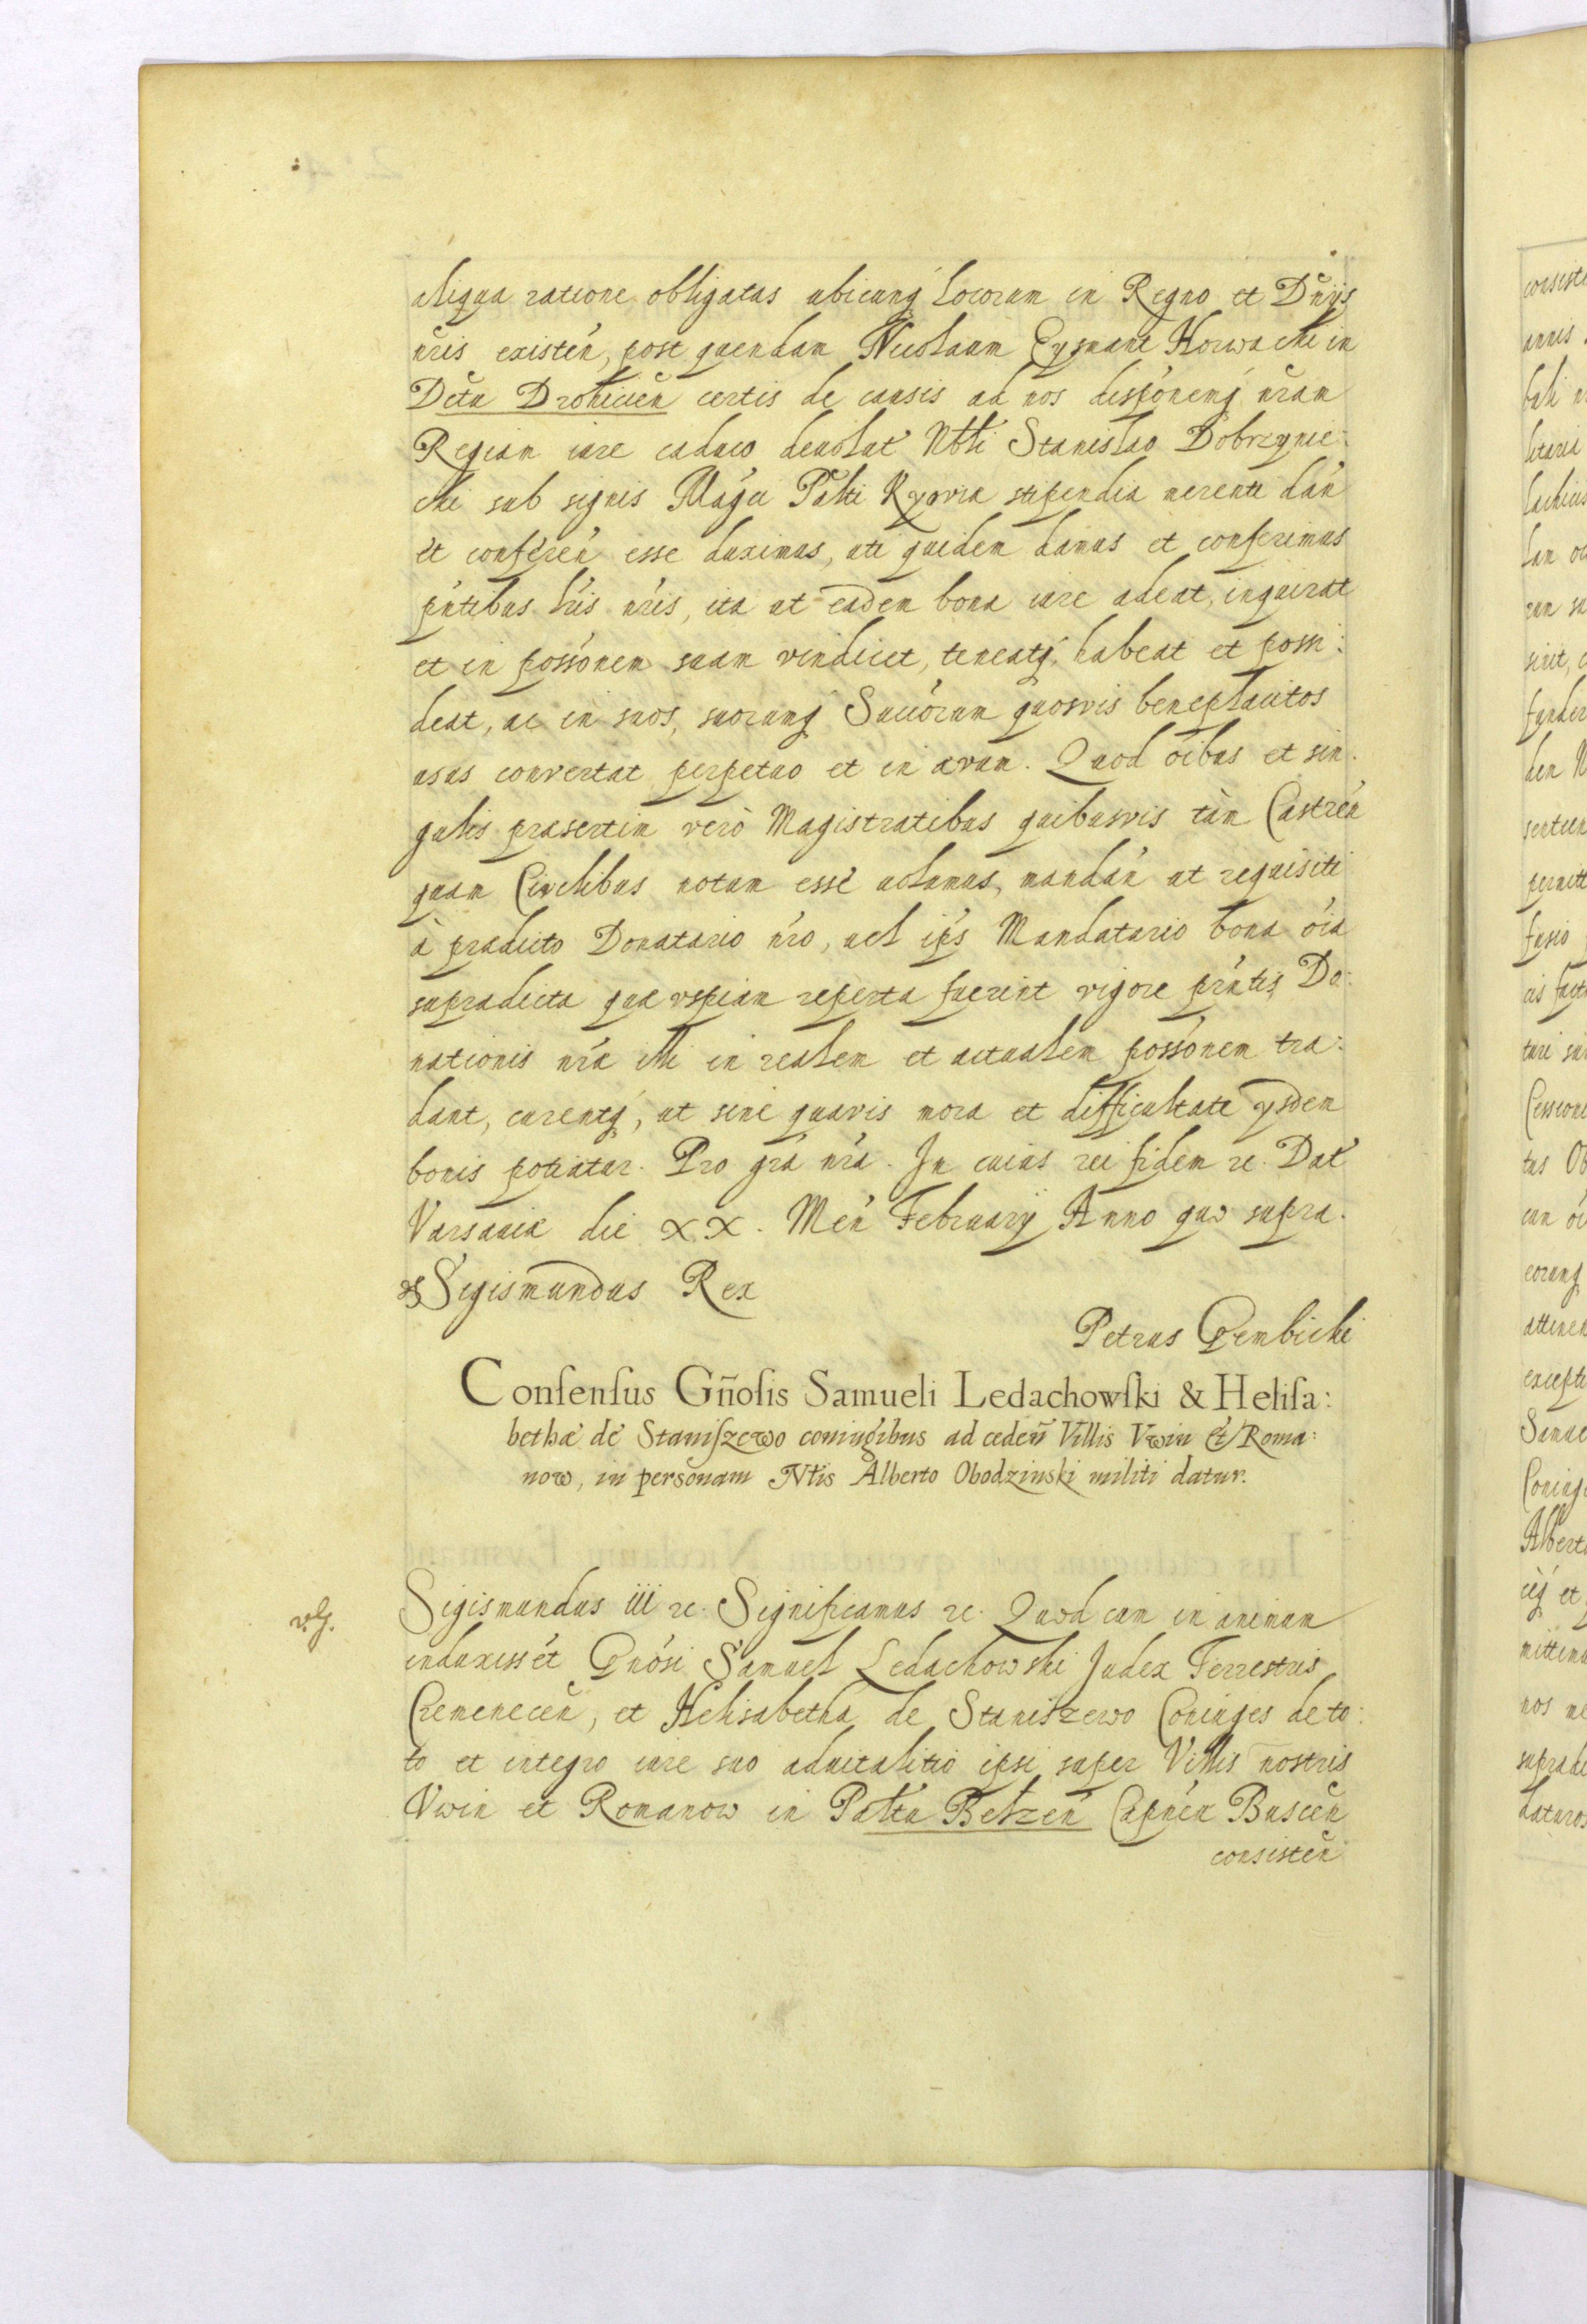 aliqua ratione obligatas ubicunq́ locorum in Regno et Dñijs
nr̃is existeń, post quendam Nicolaum Eysmant Horwachi in
Dctu Drohicień certis de causis ad nos dispónemq́ nr̃am
Regiam iure caduco devolut Nbli Stanislao Dobrzynie:
cki sub signis Mágci Palti Kyoviæ stipendia merenti dań
et conferéń esse duximus, uti quidem damus et conferimus
pńtibus lŕis nŕis, ita ut eadem bona iure adeat, inquirat
et in possónem suam vindicet, teneatq́, habeat et possi:
deat, ac in suos, suorumq́ Succórum quosvis beneplacitos
usus convertat perpetuo et in ævum. Quod oíbus et sin:
gulis præsertim verò Magistratibus quibusvis tàm Castréń
quam Civilibus notum esse volumus, mandáń ut requisiti
à prædicto Donatario nŕo, vel ipś Mandatario bona oía
supradicta quæ vspiam reperta fuerint vigore pŕntis Do:
nationis nŕæ illi in realem et actualem possónem tra:
dant, curentq́, ut sine quavis mora et difficultate ysdem
bonis potiatur. Pro gŕa nŕa. In cuius rei fidem ꝛc. Dat́
Varsaviæ die XX. Meń February Anno quo supra.
Sigismundus Rex
Petrus Gembicki
Conſenſus Gñoſis Samueli Ledachowſki & Heliſa:
bethæ de Staniſzewo coniugibus ad cedeñ Villis Vwin et Roma:
now, in personam Ntis Alberto Obodzinski militi datur.
Sigismundus iii ꝛc. Significamus ꝛc. Quod cum in animum
induxissét Gnósi Samuel Ledachowski Judex Terrestris
Cremeneceń, et Helisabetha de Staniszewo Coniuges de to:
to et integro iure suo advitalitio ipsi super Villis nostris
Vwin et Romanow in Paltu Belzeń Capnéu Busceń
consisteń